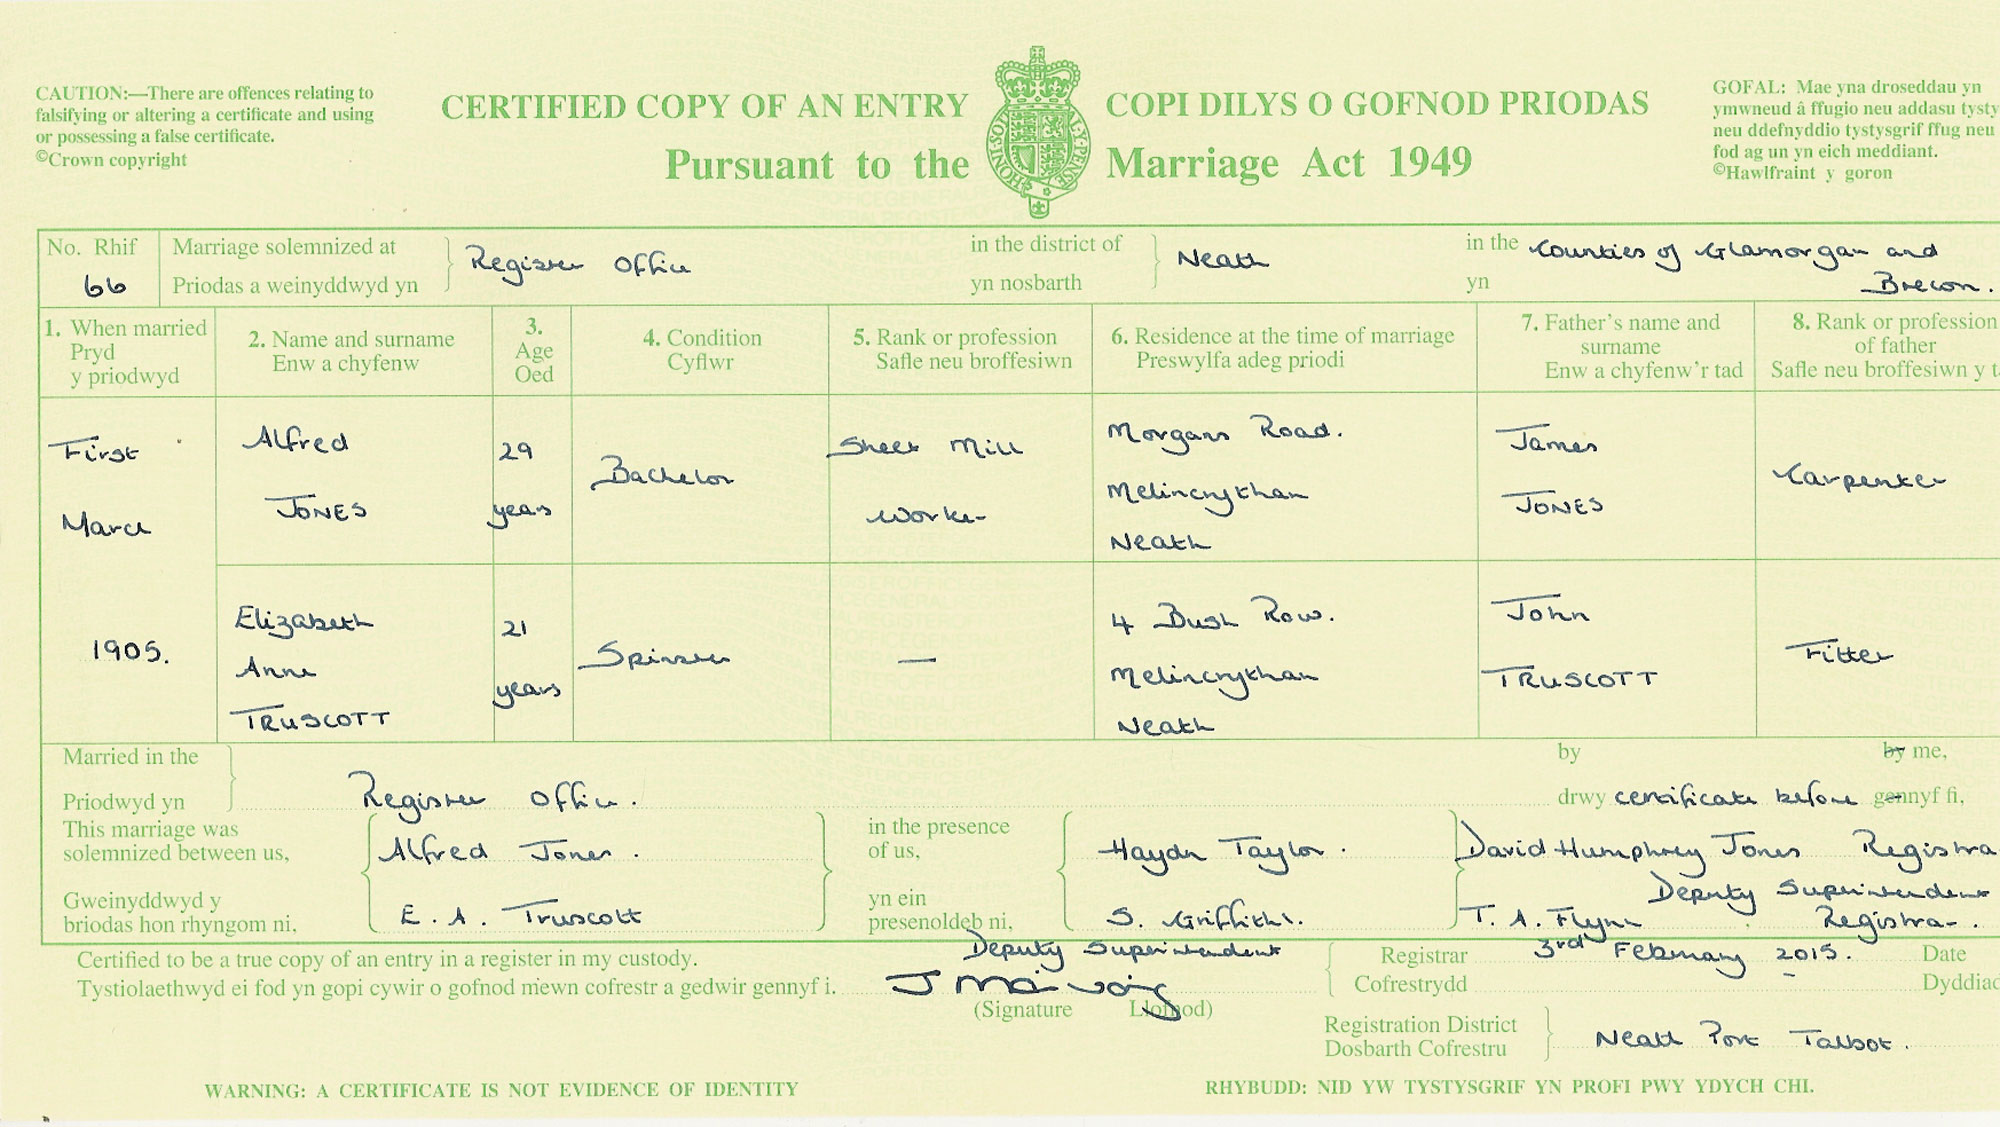 CAUTION:—There are offences relating to
falsifying or altering a certificate and using
or possessing a false certificate.
©Crown copyright
CERTIFIED COPY OF AN ENTRY
Pursuant to the
COPI DILYS O GOFNOD PRIODAS
Marriage Act 1949
GOFAL: Mae yna droseddau yn
ymwneud â ffugio neu addasu tysty
neu ddefnyddio tystysgrif ffug neu
fod ag un yn eich meddiant.
©Hawlfraint y goron
No. Rhif
66
Marriage solemnized at
Priodas a weinyddwyd yn
Register Office
in the district of
yn nosbarth
Neath
in the
yn
Counties of Glamorgan and
Brecon.
1. When married
Pryd
y priodwyd
2. Name and surname
Enw a chyfenw
3.
Age
Oed
4. Condition
Cyflwr
5. Rank or profession
Safle neu broffesiwn
6. Residence at the time of marriage
Preswylfa adeg priodi
7. Father's name and
surname
Enw a chyfenw'r tad
8. Rank or profession
of father
Safle neu broffesiwn y t
First
March
1905.
Alfred
JONES
29
years
Bachelor
Sheet Mill
Worker
Morgans Road.
Melincrythan
Neath
James
JONES
Carpenter
Elizabeth
Anne
TRUSCOTT
21
years
Spinster
—
4 Bush Row.
Melincrythan
Neath
John
TRUSCOTT
Fitter
Married in the
Priodwyd yn
Register Office.
by
drwy
certificate before
by me,
gennyf fi,
This marriage was
solemnized between us,
Gweinyddwyd y
briodas hon rhyngom ni,
Alfred Jones.
E. A. Truscott
in the presence
of us,
yn ein
presenoldeb ni,
Haydn Taylor.
S. Griffiths.
David Humphrey Jones Registra
Deputy Superintendent
T. A. Flynn Registrar.
Certified to be a true copy of an entry in a register in my custody.
Tystiolaethwyd ei fod yn gopi cywir o gofnod mewn cofrestr a gedwir gennyf i.
Deputy Superintendent
(Signature Llofnod)
Registrar
Cofrestrydd
3rd February 2015.
Date
Dyddiad
Registration District
Dosbarth Cofrestru
Neath Port Talbot.
WARNING: A CERTIFICATE IS NOT EVIDENCE OF IDENTITY
RHYBUDD: NID YW TYSTYSGRIF YN PROFI PWY YDYCH CHI.